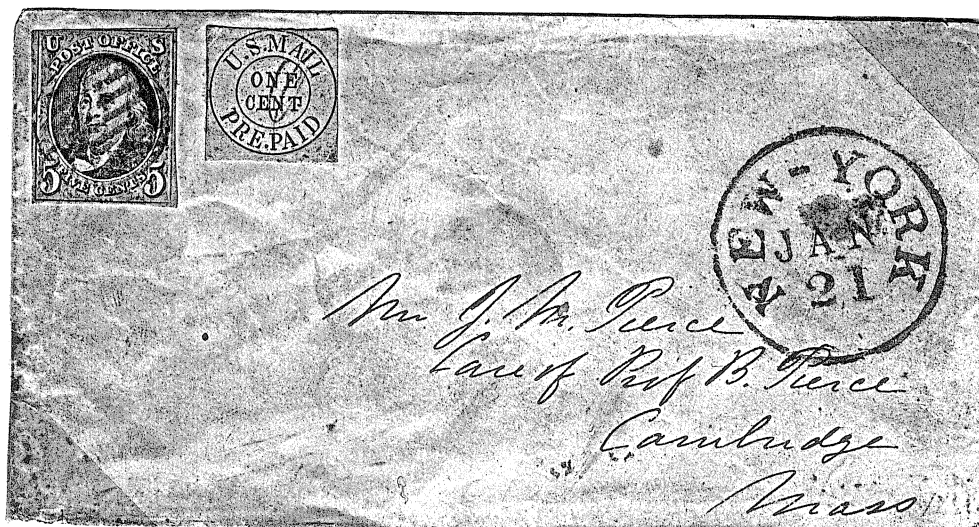 U S
POST OFFICE
5 FIVE CENTS 5
U.S. MAIL
ONE
CENT
PRE.PAID
NEW-YORK
JAN
21
Mr J. M. Pierce
Care of Prof B. Pierce
Cambridge
Mass